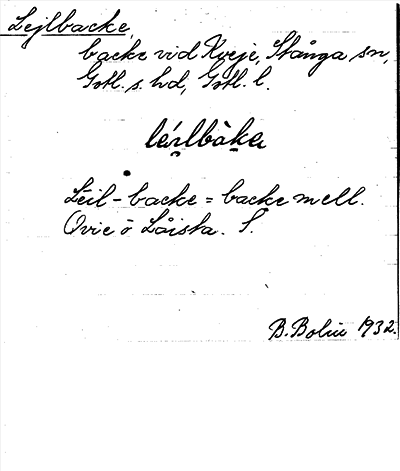 Lejlbacke,
backe vid Kveje, Stånga sn,
Gotl. s. hd, Gotl. l.
Leil-backe = backe mell.
Qvie o Låista. S.
B. Bolin 1932.